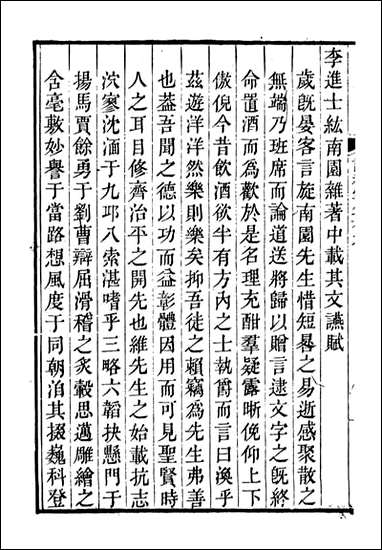 李進士紘南園雜著中載其文讌賦
歲旣晏客言旋南園先生惜短晷之易逝感聚散之
無端乃班席而論道送將歸以贈言逮文字之旣終
命置酒而爲歡於是名理充酣羣疑露晰俛仰上下
傲倪今昔飲酒欲半有方內之士執爵而言曰渙乎
茲遊洋洋然樂則樂矣抑吾徒之賴竊爲先生弗善
也葢吾聞之德以功而益彰體因用而可見聖賢時
人之耳目修齊治平之開先也維先生之始載抗志
泬寥沈湎于九邱八索湛嗜乎三略六韜抉懸門于
揚馬賈餘勇于劉曹辯屈滑稽之炙轂思邁雕繪之
含毫敷妙譽于當路想風度于同朝洎其掇巍科登